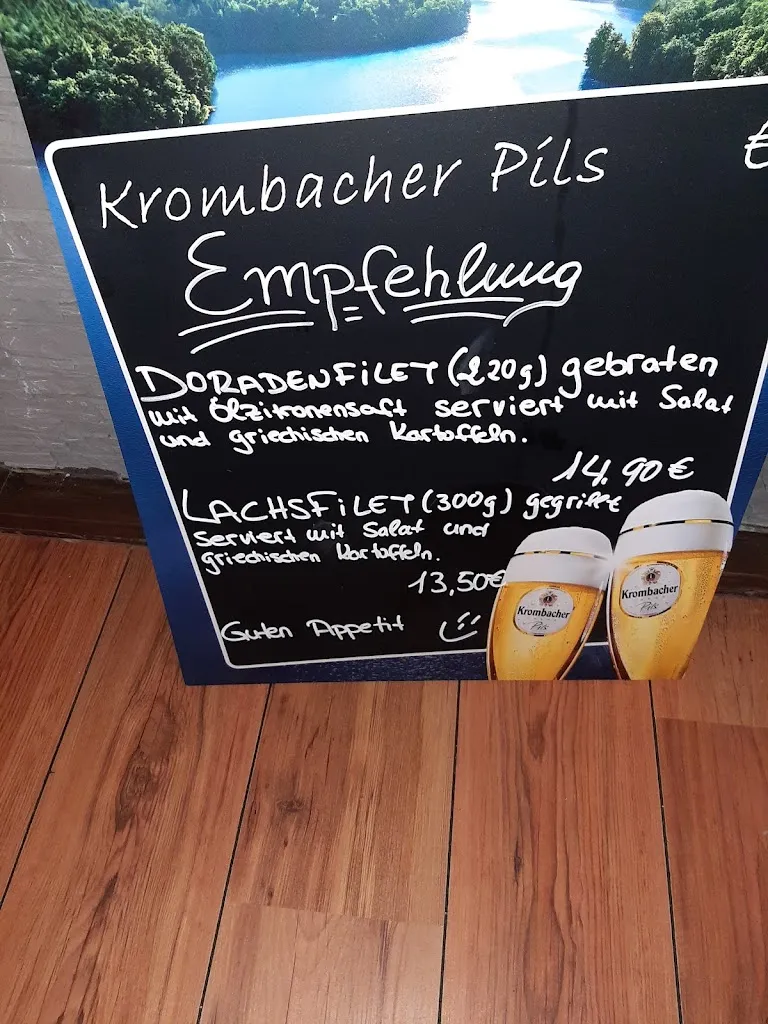 Krombacher Pils €
Empfehlung
DORADENFiLET (220g) gebraten
mit Ölzitronensaft serviert mit Salat
und griechischen Kartoffeln.
14,90 €
LACHSFiLET (300g) gegrillt
serviert mit Salat und
griechischen Kartoffeln.
13,50€
Guten Appetit
Krombacher
Pils
Krombacher
Pils